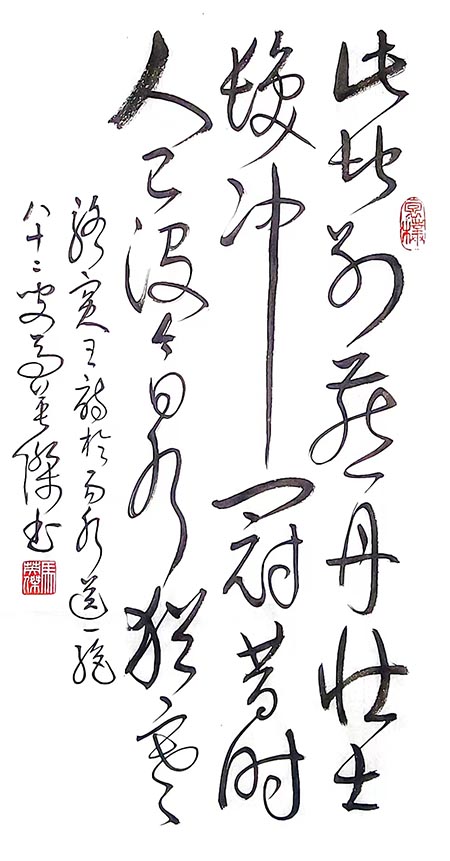 此地别燕丹壮士
髮冲冠昔时
人已没今日水犹寒
骆宾王诗於易水送一绝
八十二叟马英傑书
馬英傑